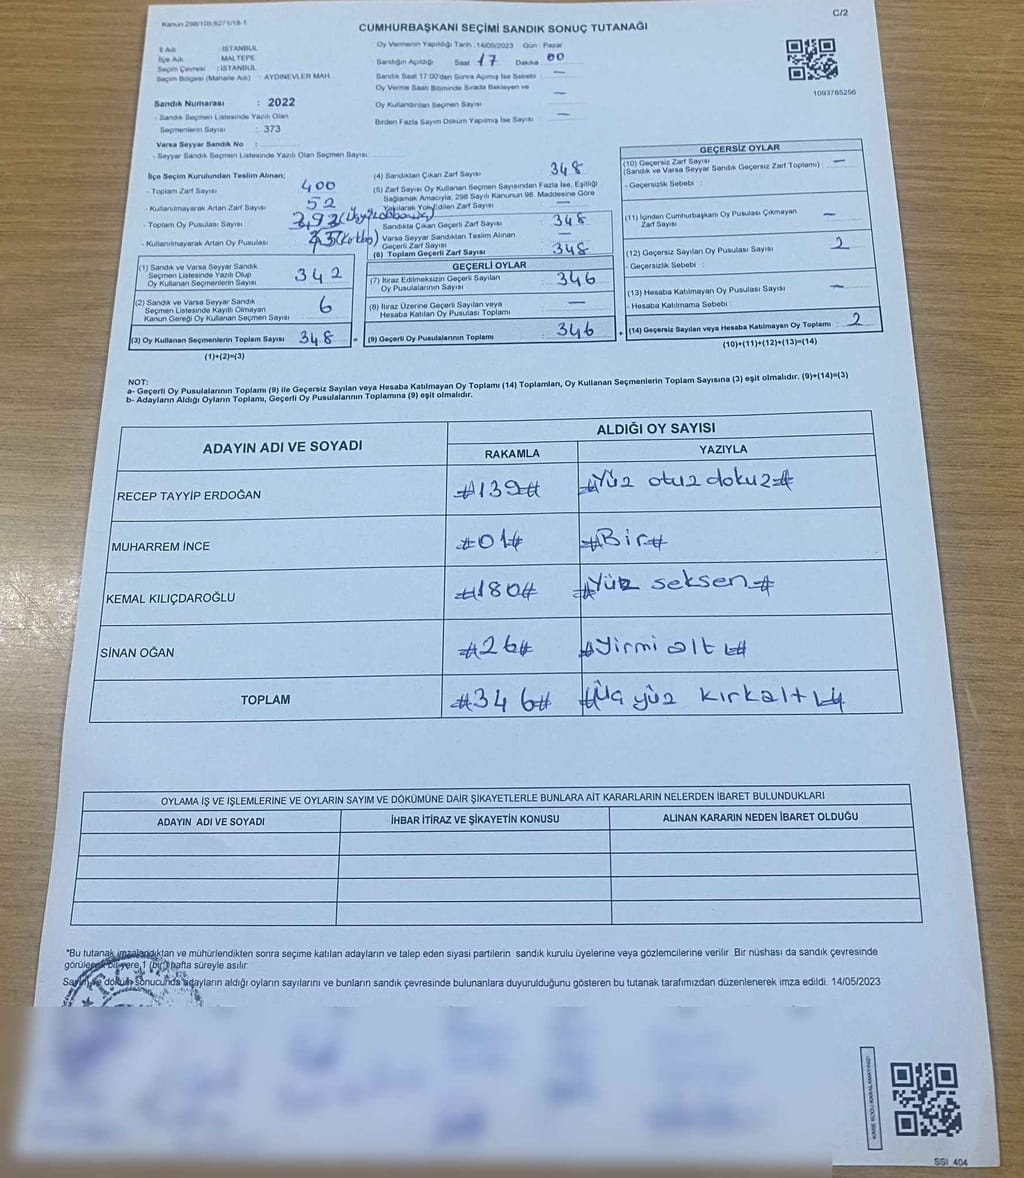 Kanun:298/109,6271/18-1
C/2
CUMHURBAŞKANI SEÇİMİ SANDIK SONUÇ TUTANAĞI
İl Adı : İSTANBUL
İlçe Adı : MALTEPE
Seçim Çevresi : İSTANBUL
Seçim Bölgesi (Mahalle Adı) : AYDINEVLER MAH.
Sandık Numarası : 2022
- Sandık Seçmen Listesinde Yazılı Olan
Seçmenlerin Sayısı : 373
Varsa Seyyar Sandık No :
- Seyyar Sandık Listesinde Yazılı Olan Seçmen Sayısı:
Oy Vermenin Yapıldığı Tarih :14/05/2023 Gün : Pazar
Sandığın Açıldığı Saat : 17 Dakika : 00
Sandık Saat 17:00'den Sonra Açılmış İse Sebebi : —
Oy Verme Saati Bitiminde Sırada Bekleyen ve
Oy Kullandırılan Seçmen Sayısı : —
Birden Fazla Sayım Döküm Yapılmış İse Sayısı : —
1093785256
İlçe Seçim Kurulundan Teslim Alınan;
- Toplam Zarf Sayısı : 400
- Kullanılmayarak Artan Zarf Sayısı : 52
- Toplam Oy Pusulası Sayısı : 393
- Kullanılmayarak Artan Oy Pusulası
(1) Sandık ve Varsa Seyyar Sandık
Seçmen Listesinde Yazılı Olup
Oy Kullanan Seçmenlerin Sayısı : 342
(2) Sandık ve Varsa Seyyar Sandık
Seçmen Listesinde Kayıtlı Olmayan
Kanun Gereği Oy Kullanan Seçmen Sayısı : 6
(3) Oy Kullanan Seçmenlerin Toplam Sayısı : 348
(1)+(2)=(3)
(4) Sandıktan Çıkan Zarf Sayısı : 348
(5) Zarf Sayısı Oy Kullanan Seçmen Sayısından Fazla İse, Eşitliği
Sağlamak Amacıyla, 298 Sayılı Kanunun 98. Maddesine Göre
Yakılarak Yok Edilen Zarf Sayısı : —
Sandıkta Çıkan Geçerli Zarf Sayısı : 348
Varsa Seyyar Sandıktan Teslim Alınan
Geçerli Zarf Sayısı : —
(6) Toplam Geçerli Zarf Sayısı : 348
GEÇERLİ OYLAR
(7) İtiraz Edilmeksizin Geçerli Sayılan
Oy Pusulalarının Sayısı : 346
(8) İtiraz Üzerine Geçerli Sayılan veya
Hesaba Katılan Oy Pusulası Toplamı : —
= (9) Geçerli Oy Pusulalarının Toplamı : 346
GEÇERSİZ OYLAR
(10) Geçersiz Zarf Sayısı : —
(Sandık ve Varsa Seyyar Sandık Geçersiz Zarf Toplamı)
- Geçersizlik Sebebi :
(11) İçinden Cumhurbaşkanı Oy Pusulası Çıkmayan : —
Zarf Sayısı
(12) Geçersiz Sayılan Oy Pusulası Sayısı : 2
- Geçersizlik Sebebi :
(13) Hesaba Katılmayan Oy Pusulası Sayısı : —
- Hesaba Katılmama Sebebi :
+ (14) Geçersiz Sayılan veya Hesaba Katılmayan Oy Toplamı : 2
(10)+(11)+(12)+(13)=(14)
NOT:
a- Geçerli Oy Pusulalarının Toplamı (9) ile Geçersiz Sayılan veya Hesaba Katılmayan Oy Toplamı (14) Toplamları, Oy Kullanan Seçmenlerin Toplam Sayısına (3) eşit olmalıdır. (9)+(14)=(3)
b- Adayların Aldığı Oyların Toplamı, Geçerli Oy Pusulalarının Toplamına (9) eşit olmalıdır.
ADAYIN ADI VE SOYADI
ALDIĞI OY SAYISI
RAKAMLA YAZIYLA
RECEP TAYYİP ERDOĞAN #139# #Yüz otuz dokuz#
MUHARREM İNCE #01# #Bir#
KEMAL KILIÇDAROĞLU #180# #Yüz seksen#
SİNAN OĞAN #26# #Yirmi altı#
TOPLAM #346# #Üç yüz kırkaltı#
OYLAMA İŞ VE İŞLEMLERİNE VE OYLARIN SAYIM VE DÖKÜMÜNE DAİR ŞİKAYETLERLE BUNLARA AİT KARARLARIN NELERDEN İBARET BULUNDUKLARI
ADAYIN ADI VE SOYADI İHBAR İTİRAZ VE ŞİKAYETİN KONUSU ALINAN KARARIN NEDEN İBARET OLDUĞU
"Bu tutanak imzalandıktan ve mühürlendikten sonra seçime katılan adayların ve talep eden siyasi partilerin sandık kurulu üyelerine veya gözlemcilerine verilir .Bir nüshası da sandık çevresinde
görülen bir yere 1 (bir) hafta süreyle asılır.
Sayım ve döküm sonucunda adayların aldığı oyların sayılarını ve bunların sandık çevresinde bulunanlara duyurulduğunu gösteren bu tutanak tarafımızdan düzenlenerek imza edildi. 14/05/2023
KARE KODU KARALAMAYINIZ!
SSI 404